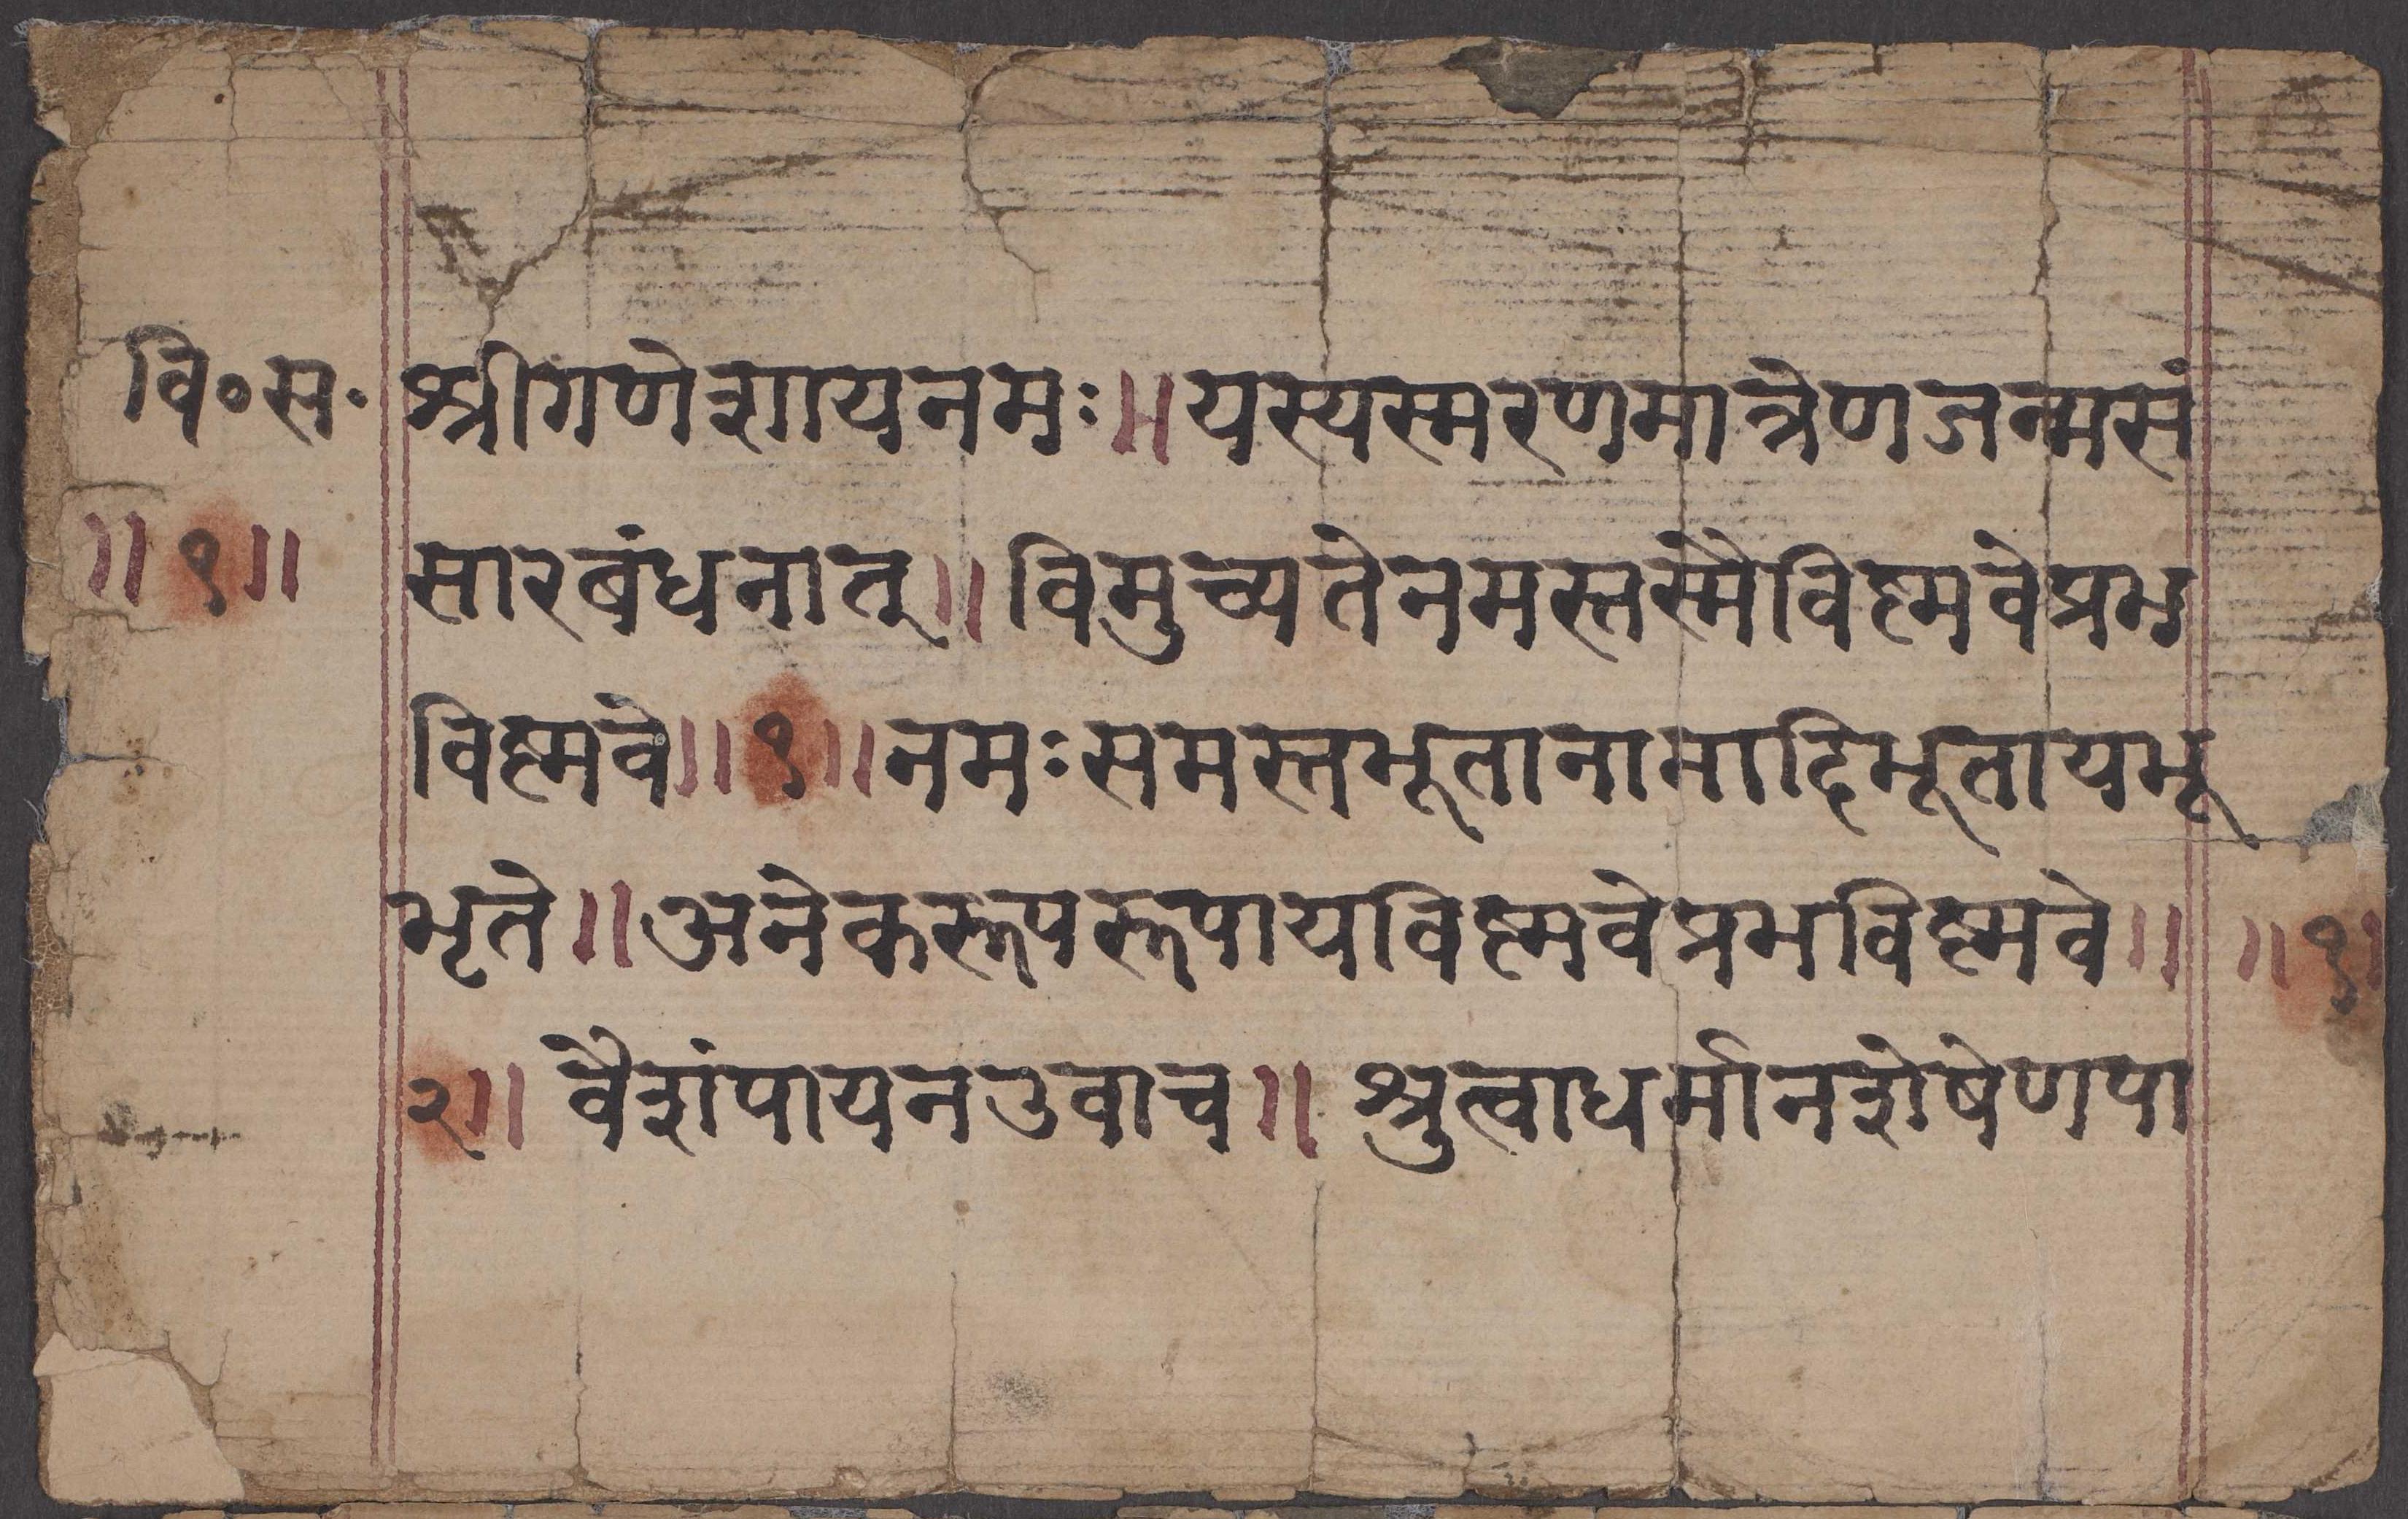 वि॰स॰ श्रीगणेशायनमः॥यस्यस्मरणमात्रेणजन्मसं
॥१॥ सारबंधनात्॥विमुच्यतेनमस्तस्मैविष्णवेप्रभ
विष्णवे॥१॥नमःसमस्तभूतानामादिभूतायभू
भृते॥अनेकरूपरूपायविष्णवेप्रभविष्णवे॥ ॥१॥
२॥ वैशंपायनउवाच॥ श्रुत्वाधर्मानशेषेणपा